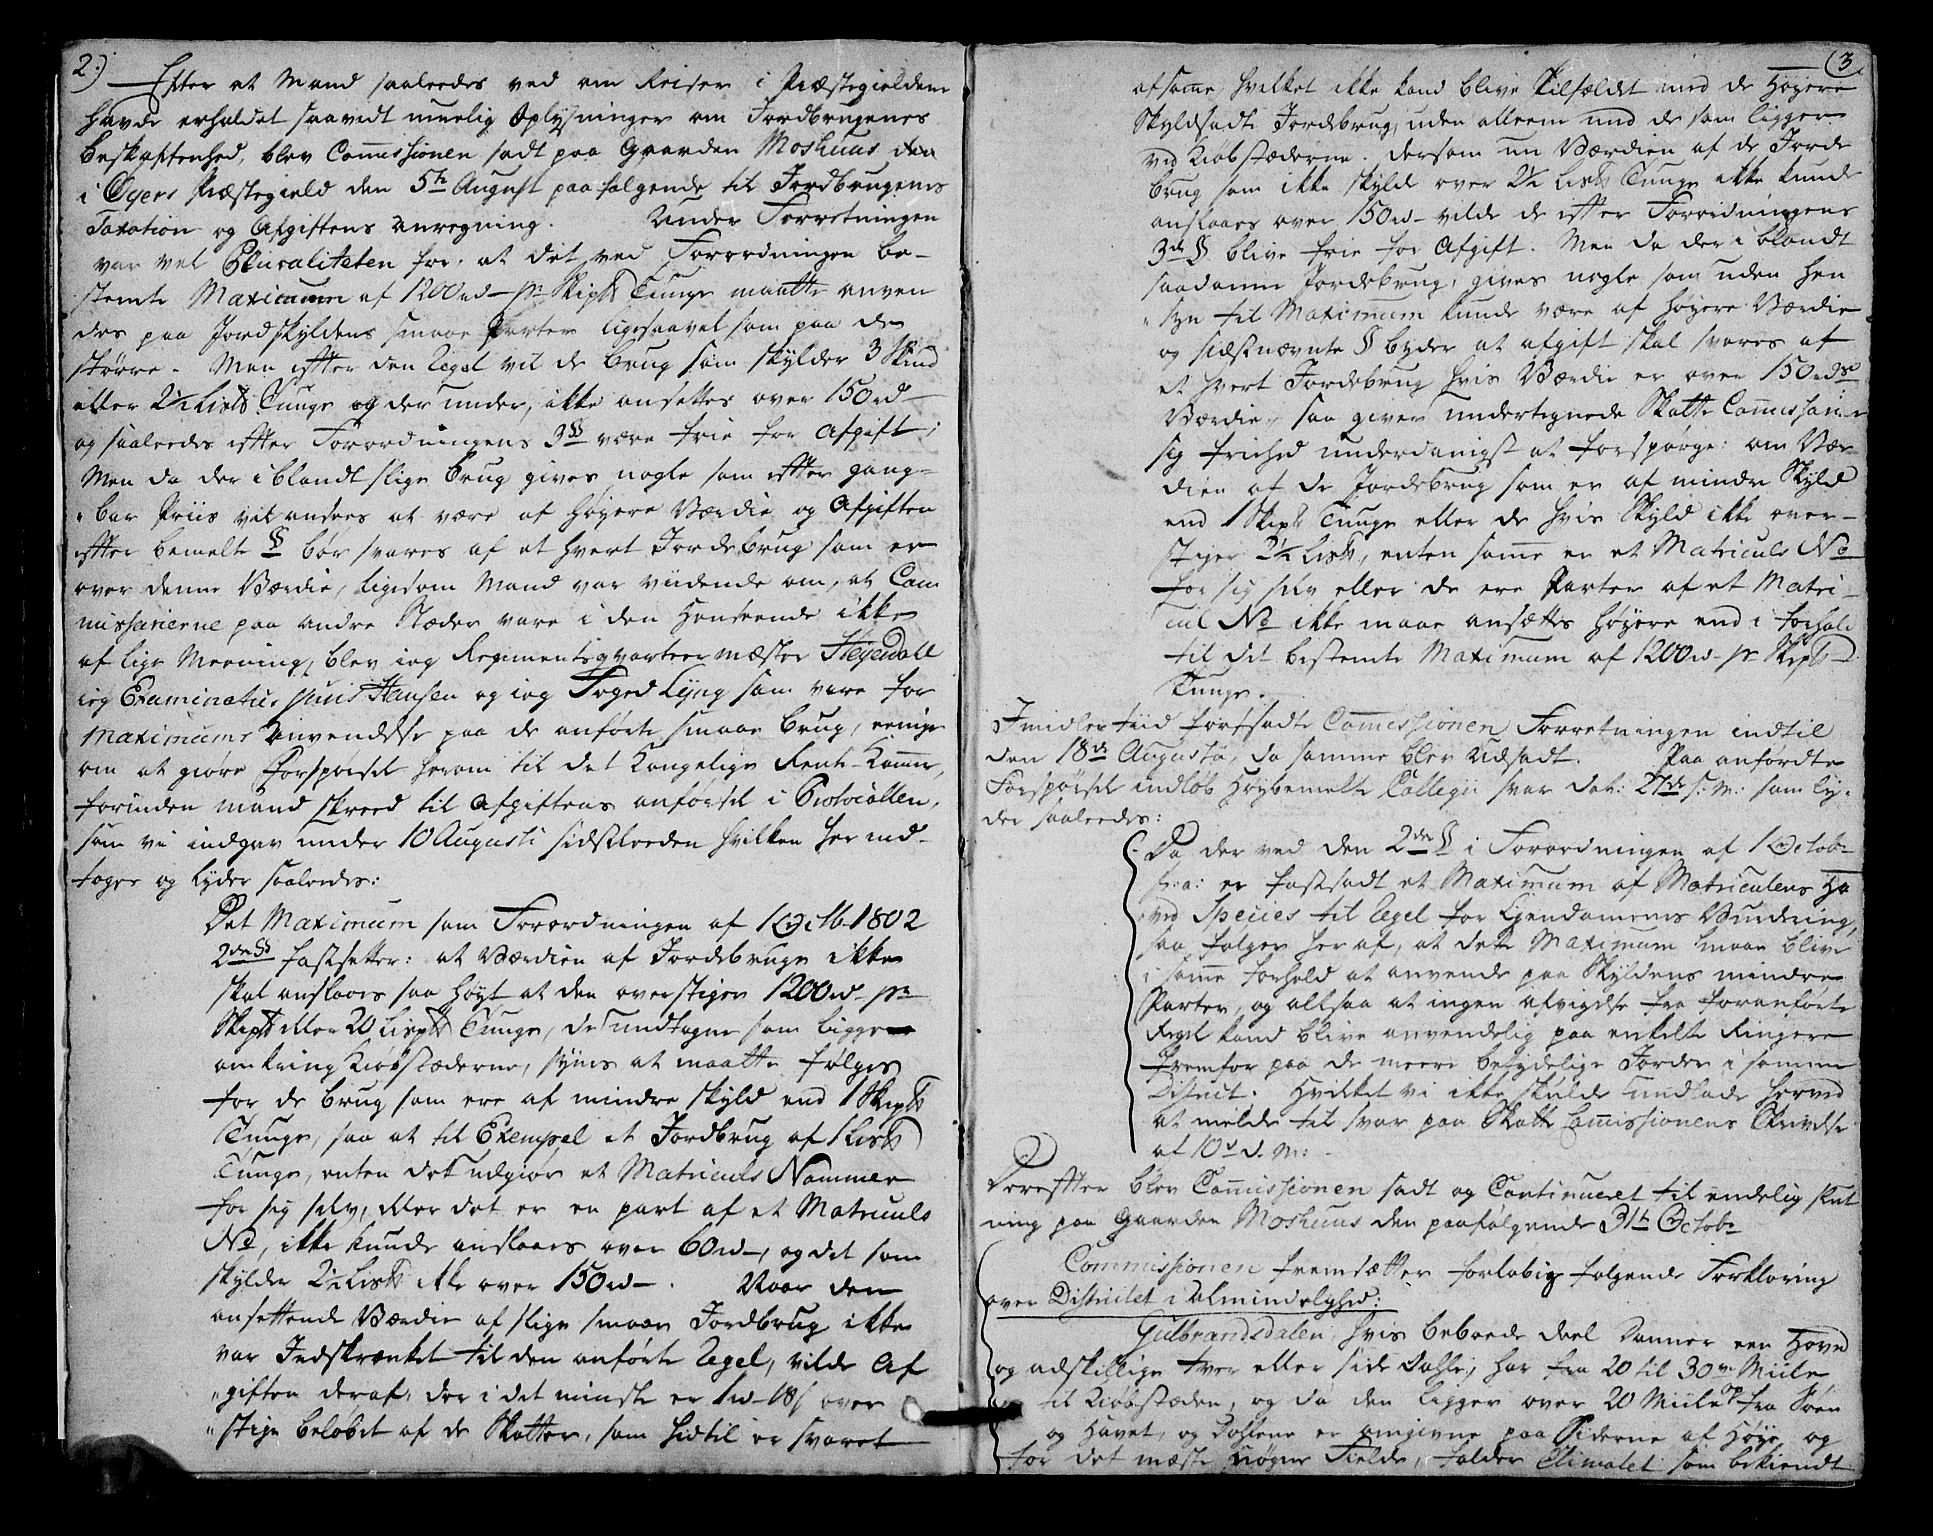 2.)
Efter at Mand saaledes ved en Reise i Præstegieldene
havde erholdet saavidt muelig Oplysninger om Jordbrugenes
beskaffenhed, blev Commissionen sadt paa Gaarden Moshuus den
i Øyers Præstegield den 5te August paa følgende til Jordbrugenes
Taxation og Afgiftens anregning. Under Forretningen
var vel Pluraliteten for, at det ved Forordningen be-
stemte Maximum af 1200rd pr Skipd Tunge maatte anven
des paa Jordskyldens smaae Parter ligesaavel som paa de
større. Men efter den Regel vil de brug som skylder 3 Skind
eller 2½ Lispd Tunge og der under, ikke ansettes over 150rd
og saaledes efter Forordningens 3§ være frie for Afgift;
Men da der iblandt slige brug gives nogle som efter gang-
bar Priis vil ansees at være af høyere Værdie og Afgiften
efter bemelte § bør svares af et hvert Jordebrug som er
over denne Værdie, ligesom Mand var viidende om, at Com
missairerne paa andre Stæder vare i den Henseende ikke
af lige Meening, blev ieg Regimentsqvarteermæster Heyerdall
ieg Examinatus juris Hansen og ieg Foged Lyng som vare for
Maximums Anvendelse paa de anførte smaae brug, eenige
om at giøre Forspørsel herom til det Kongelige Rente-Kammer,
forinden mand skreed til Afgiftens anførsel i Protocollen,
som vi indgav under 10 Augusti sidstleeden hvilken her ind-
tages og lyder saaledes:
Det Maximum som Forordningen af 1 Octb 1802
2den § fastsetter: at Værdien af Jordebruge ikke
skal anslaaes saa høyt at den overstiger 1200rd pr
Skipd eller 20 Lispd Tunge, de undtagne som ligger
omkring Kiøbstæderne, synes at maatte følges
for de brug som ere af mindre skyld end 1 Skipd
Tunge, saa at til Exempel et Jordbrug af 1 Lispd
Tunge, enten det udgiør et Matriculs Nommer
for sig selv, eller det er en part af et Matriculs
No, ikke kunde anslaaes over 60rd, og det som
skylder 2½ Lispd ikke over 150rd. Naar den
ansettende Værdie af slige smaae Jordbrug ikke
var Indskrænket til den anførte Regel, vilde Af
giften deraf, der i det minste er 1rd 18s over
stige beløbet af de Skatter, som hidtil er svaret
3
af samme, hvilket ikke kand blive tilfældet med de høyere
Skyldsadte Jordebrug, uden alleene med de som ligger
ved Kiøbstæderne. Dersom nu Værdien af de Jorde
brug som ikke skylde over 2½ Lispd Tunge ikke kunde
anslaaes over 150rd vilde de efter Forordningens
3de § blive frie for Afgift. Men da der i blandt
saadanne Jordebrug, gives nogle som uden hen
syn til Maximum kunde være af høyere Værdie
og sidstnævnte § byder at afgift skal svares af
et hvert Jordebrug hvis Værdie er over 150rds
Værdie, saa giver undertegnede Skatte Commission
sig friehed underdanigst at forspørge: om Vær
dien af de Jordebrug som er af mindre Skyld
end 1 Skipd Tunge eller de hvis Skyld ikke over-
stiger 2½ Lispd, enten samme er et Matriculs No
for sig selv eller de ere Parter af et Matri
cul No ikke maae ansættes høyere end i forhold
til det bestemte Maximum af 1200rd pr Skipd
Tunge.
Imidlertiid fortsadte Commissionen Forretningen indtil
den 18de Augusti, da samme blev Udsadt. Paa anførdte
Forspørsel indløb Høybemelte Collegii svar dat: 27de s: m: som ly-
der saaledes:
Da der ved den 2den § i Forordningen af 1 Octobr
f: a: er fastsadt et Maximum af Matriculens Ho
ved Species til Regel for Eyendommenes Vurdering,
saa følger her af, at dette Maximum maae blive
i samme forhold at anvende paa Skyldens mindre
Parter, og altsaa at ingen afvigelse fra foranførte
Regel kand blive anvendelig paa enkelte Ringere
fremfor paa de meere betydelige Jorder i samme
District. Hvilket vi ikke skulde undlade herved
at melde til svar paa Skatte Commissionens Skrivelse
af 10de d. M:
Derefter blev Commissionen sadt og Continueret til endelig slut
ning paa Gaarden Moshuus den paafølgende 31te Octobr
Commissionen fremsætter forløbig følgende Forklaring
over Districtet i Almindelighed:
Gulbrandsdalen, hvis beboede deel Danner een Hoved
og adskillige tver eller side Dahle, har fra 20 til 30ve Miile
til Kiøbstæden, og da den ligger over 20 Miile op fra Søen
og Havet, og Dahlene er omgivne paa Siderne af Høye og
for det mæste nøgne Fielde, falder Climatet som bekiendt